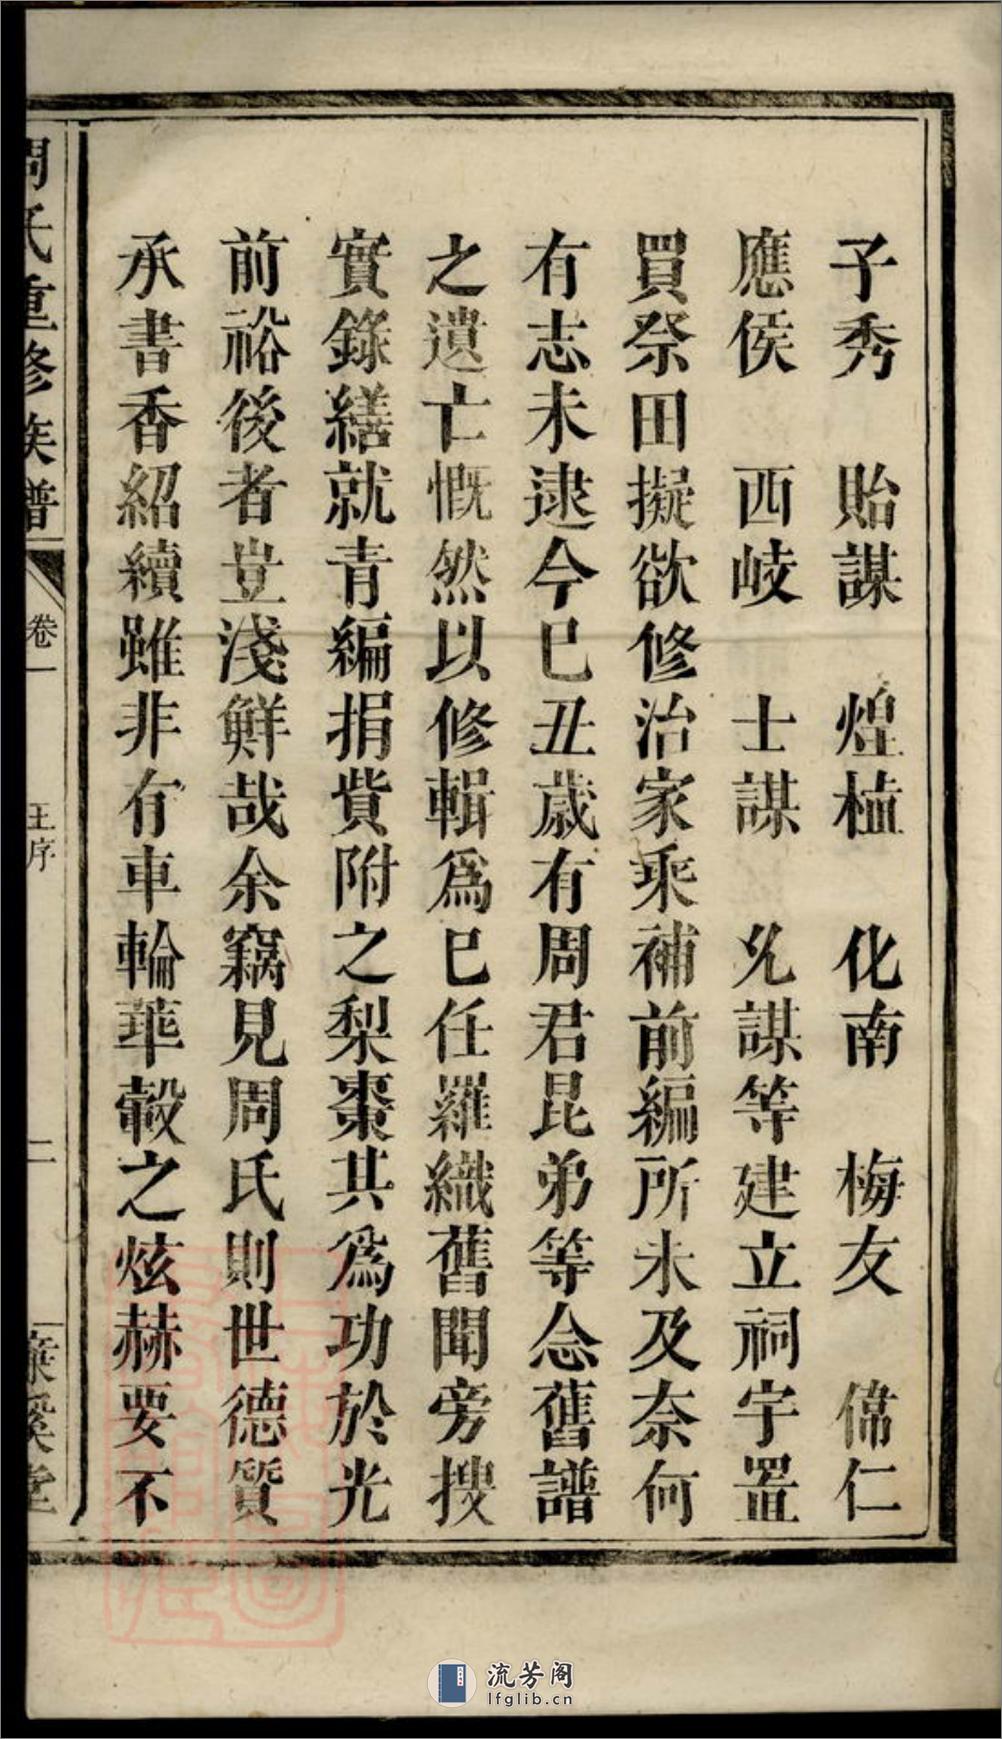 子秀　貽謀　煌植　化南　梅友　偉仁
應侯　西岐　士謀　允謀等建立祠宇置
買祭田擬欲修治家乘補前編所未及奈何
有志未逮今巳丑歲有周君昆弟等念舊譜
之遺亡慨然以修輯爲巳任羅織舊聞旁搜
實錄繕就青編捐貲附之梨棗其爲功於光
前裕後者豈淺鮮哉余竊見周氏則世德質
承書香紹續雖非有車輪華轂之炫赫要不
周氏重修族譜
卷一
王序
二
溪堂
流芳阁
lfglib.cn